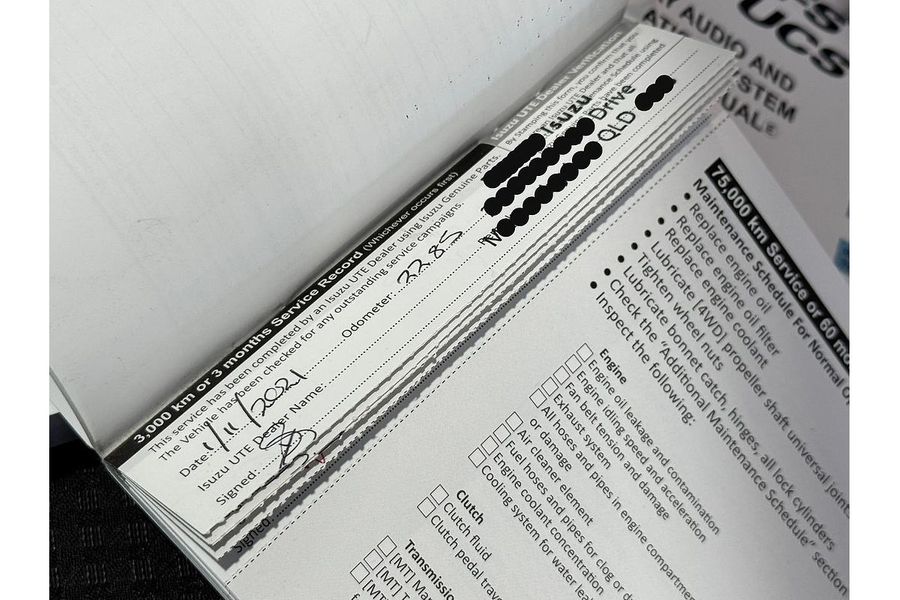 3,000 km or 3 months Service Record (Whichever occurs first)
This service has been completed by an Isuzu UTE Dealer using Isuzu Genuine Parts.
The Vehicle has been checked for any outstanding service campaigns.
Date: 1/11/2021 Odometer: 2285
Isuzu UTE Dealer Name:
Signed:
Signed:
Isuzu UTE Dealer Verification
By Stamping this form, you confirm that you
an Isuzu UTE Dealer and that all
Maintenance Schedule using
have been completed
Isuzu
Drive
QLD
AUDIO AND
STEM
UAL
75,000 km Service or 60 mo
Maintenance Schedule For Normal O
• Replace engine oil
• Replace engine oil filter
• Replace engine coolant
• Lubricate (4WD) propeller shaft universal joint
• Tighten wheel nuts
• Lubricate bonnet catch, hinges, all lock cylinders
• Check the "Additional Maintenance Schedule" section
• Inspect the following:
Engine
Engine oil leakage and contamination
Engine idling speed and acceleration
Fan belt tension and damage
Exhaust system
All hoses and pipes in engine compartment
or damage
Air cleaner element
Fuel hoses and pipes for clog or d
Engine coolant concentration
Cooling system for water leak
Clutch
Clutch fluid
Clutch pedal trave
Transmission
[MT] Ma
[MT] T